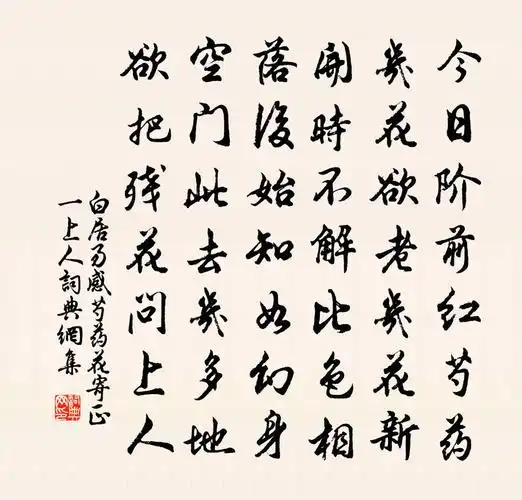 今日阶前红芍药
几花欲老几花新
開時不解比色相
落後始知如幻身
空门此去几多地
欲把残花问上人
白居易感芍药花寄正
一上人詞典網集